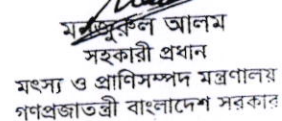 মনজুরুল আলম
সহকারী প্রধান
মৎস্য ও প্রাণিসম্পদ মন্ত্রণালয়
গণপ্রজাতন্ত্রী বাংলাদেশ সরকার